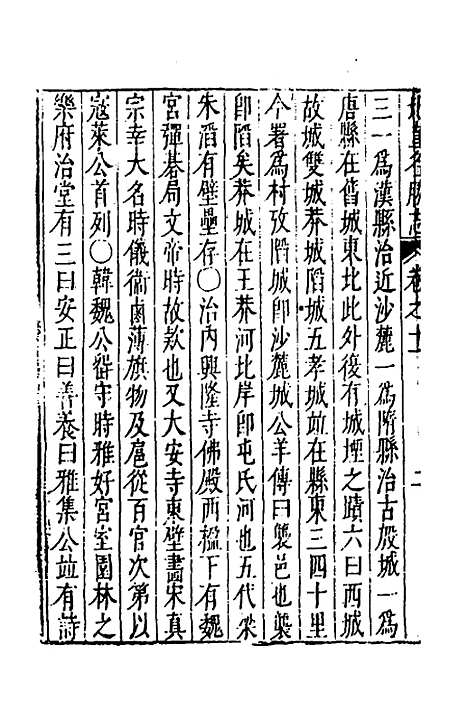 名勝志 卷之十
三一爲漢縣治近沙麓一爲隋縣治古殷城一爲
唐縣在舊城東北此外後有城堙之蹟六曰西城
故城雙城莽城䧟城五孝城竝在縣東三四十里
今署爲村攷䧟城卽沙麓城公羊傳曰襲邑也襲
卽䧟矣莽城在王莽河北岸卽屯氏河也五代梁
朱滔有壁壘存○治内興隆寺佛殿西楹下有魏
宮彈碁局文帝時故欵也又大安寺東壁畵宋真
宗幸大名時儀衞鹵薄旗物及扈從百官次第以
寇萊公首列○韓魏公畱守時雅好宮室園林之
樂府治堂有三曰安正曰善養曰雅集公竝有詩